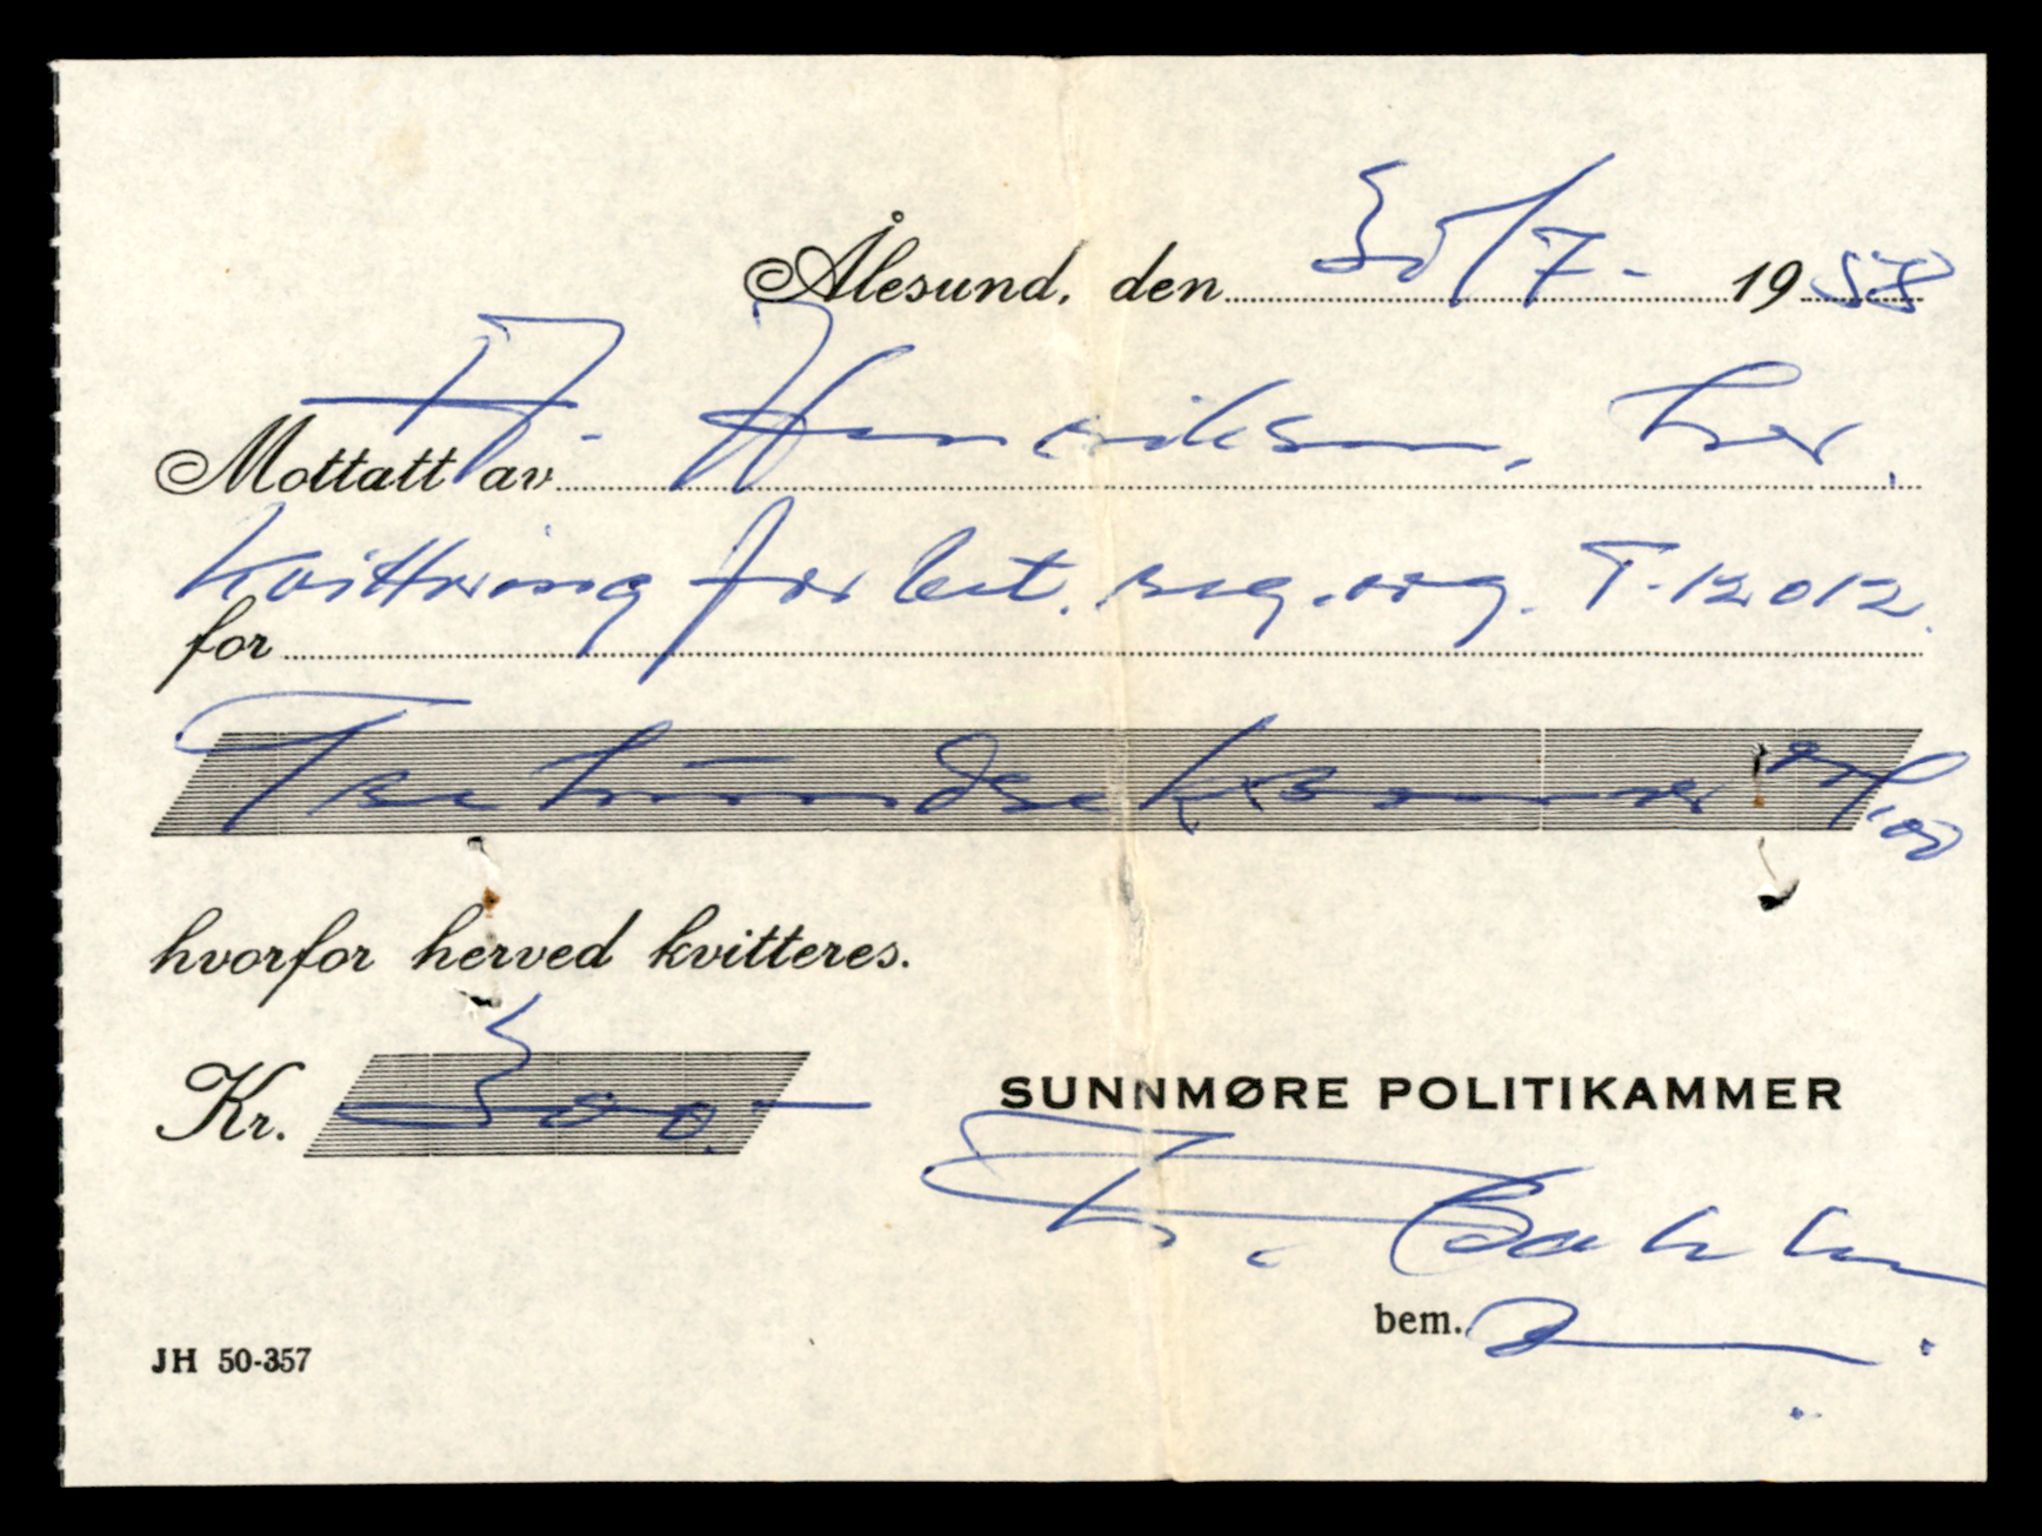 Ålesund, den 30/7- 1958
Mottatt av A. Henriksen, her.
Kvittring for bet. reg. avg. T-12012.
for
Trehundrekroner 00/100
hvorfor herved kvitteres.
Kr. 300.-
SUNNMØRE POLITIKAMMER
bem.
JH 50-357